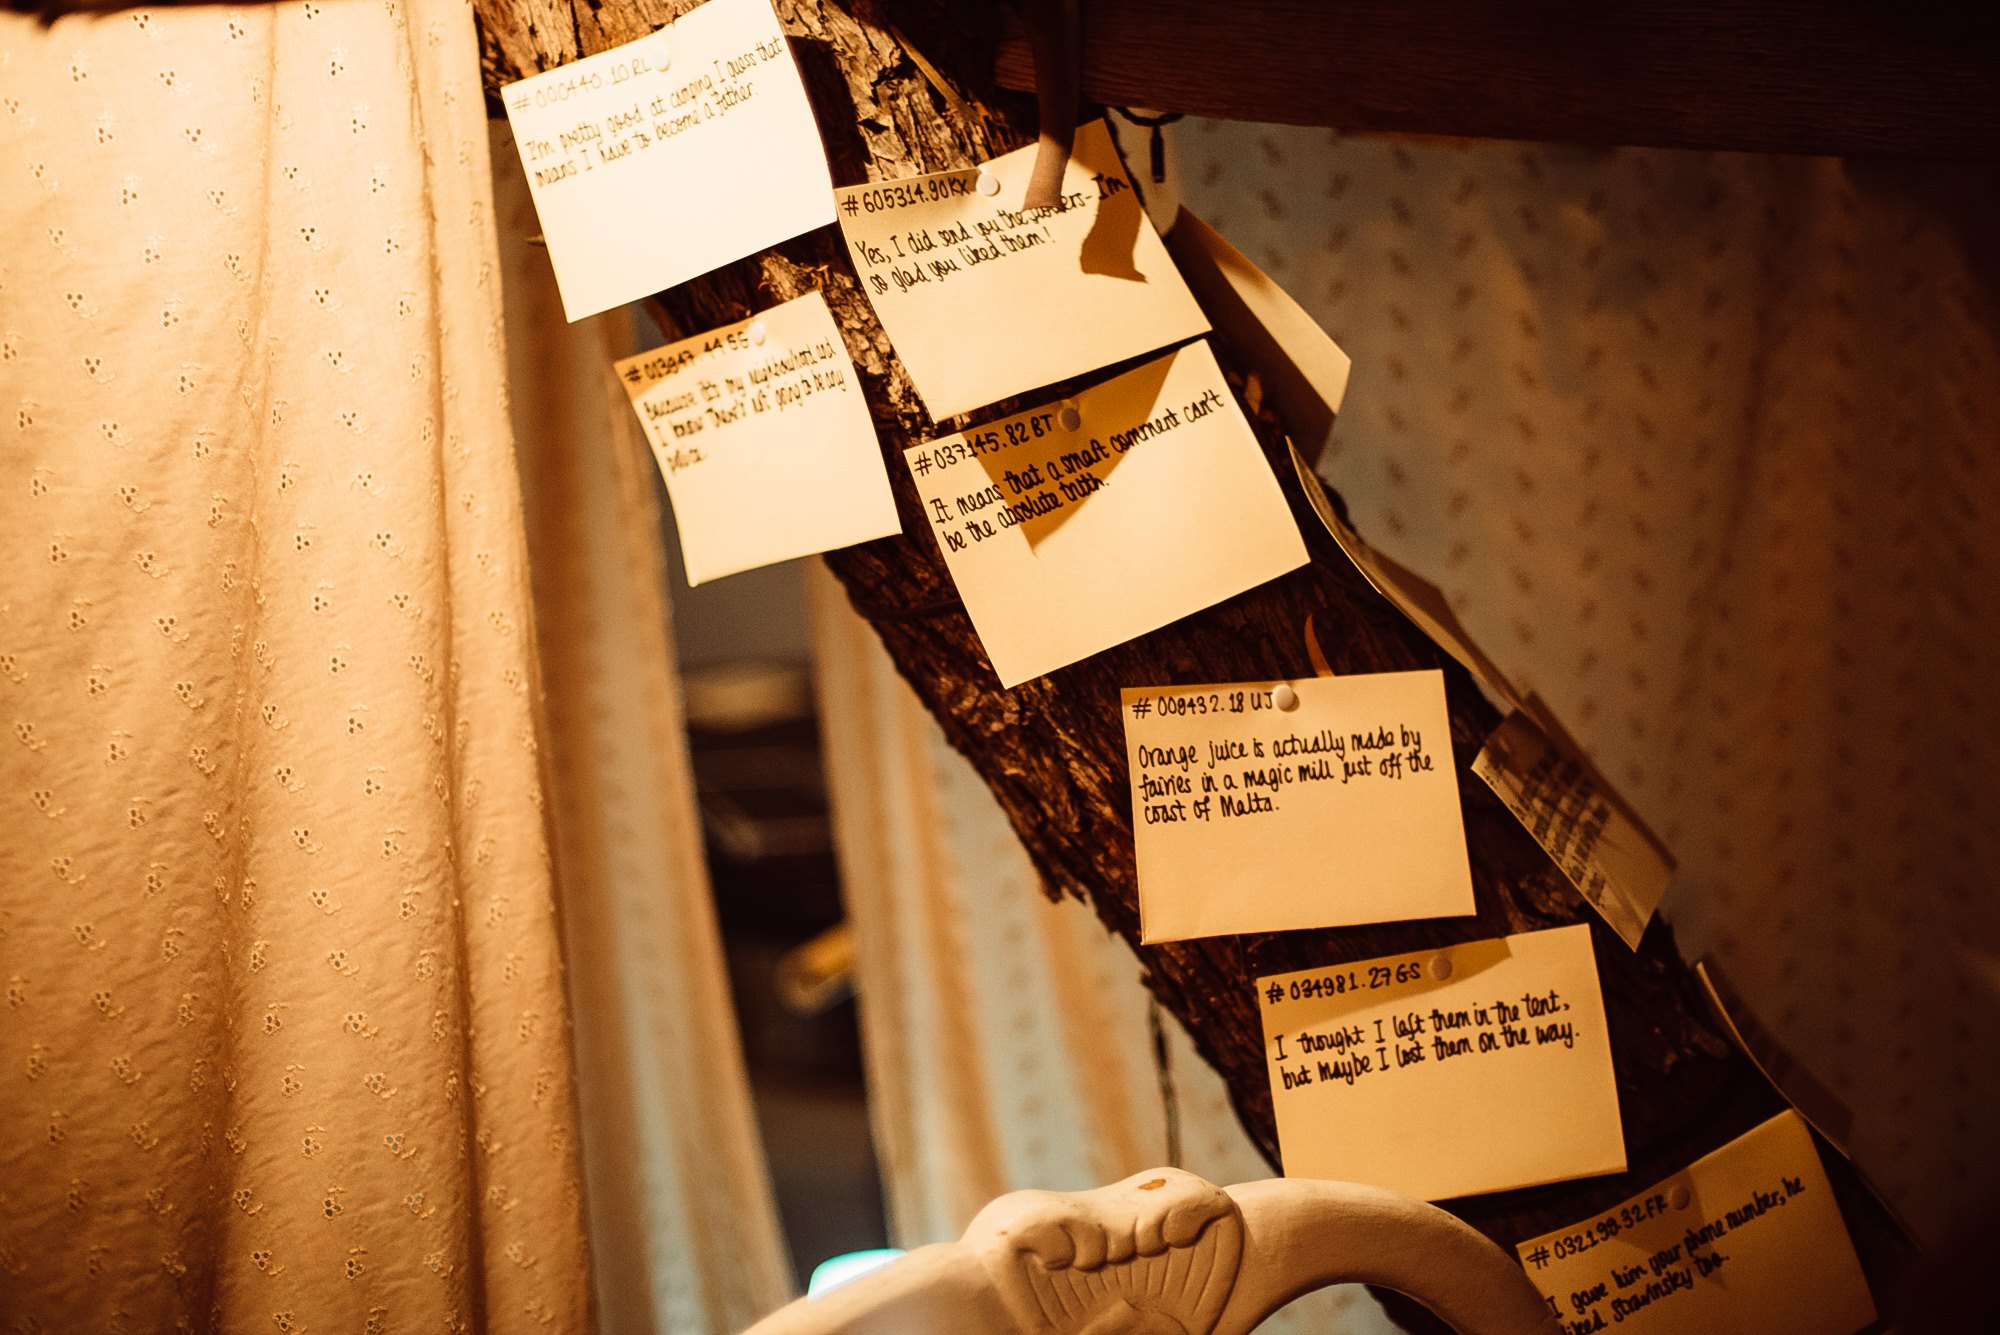 #000440.10RL
I'm pretty good at camping, I guess that
means I have to become a father.
#605314.90KX
Yes, I did send you the flowers - I'm
so glad you liked them!
#013947.44SG
Because it's my neighbourhood and
I know there's not going to be any
police.
#037145.82BT
It means that a smart comment can't
be the absolute truth.
#009432.18UJ
Orange juice is actually made by
fairies in a magic mill just off the
coast of Malta.
#034981.27GS
I thought I left them in the tent,
but maybe I lost them on the way.
#032198.32FR
I gave him your phone number, he
liked Stravinsky too.